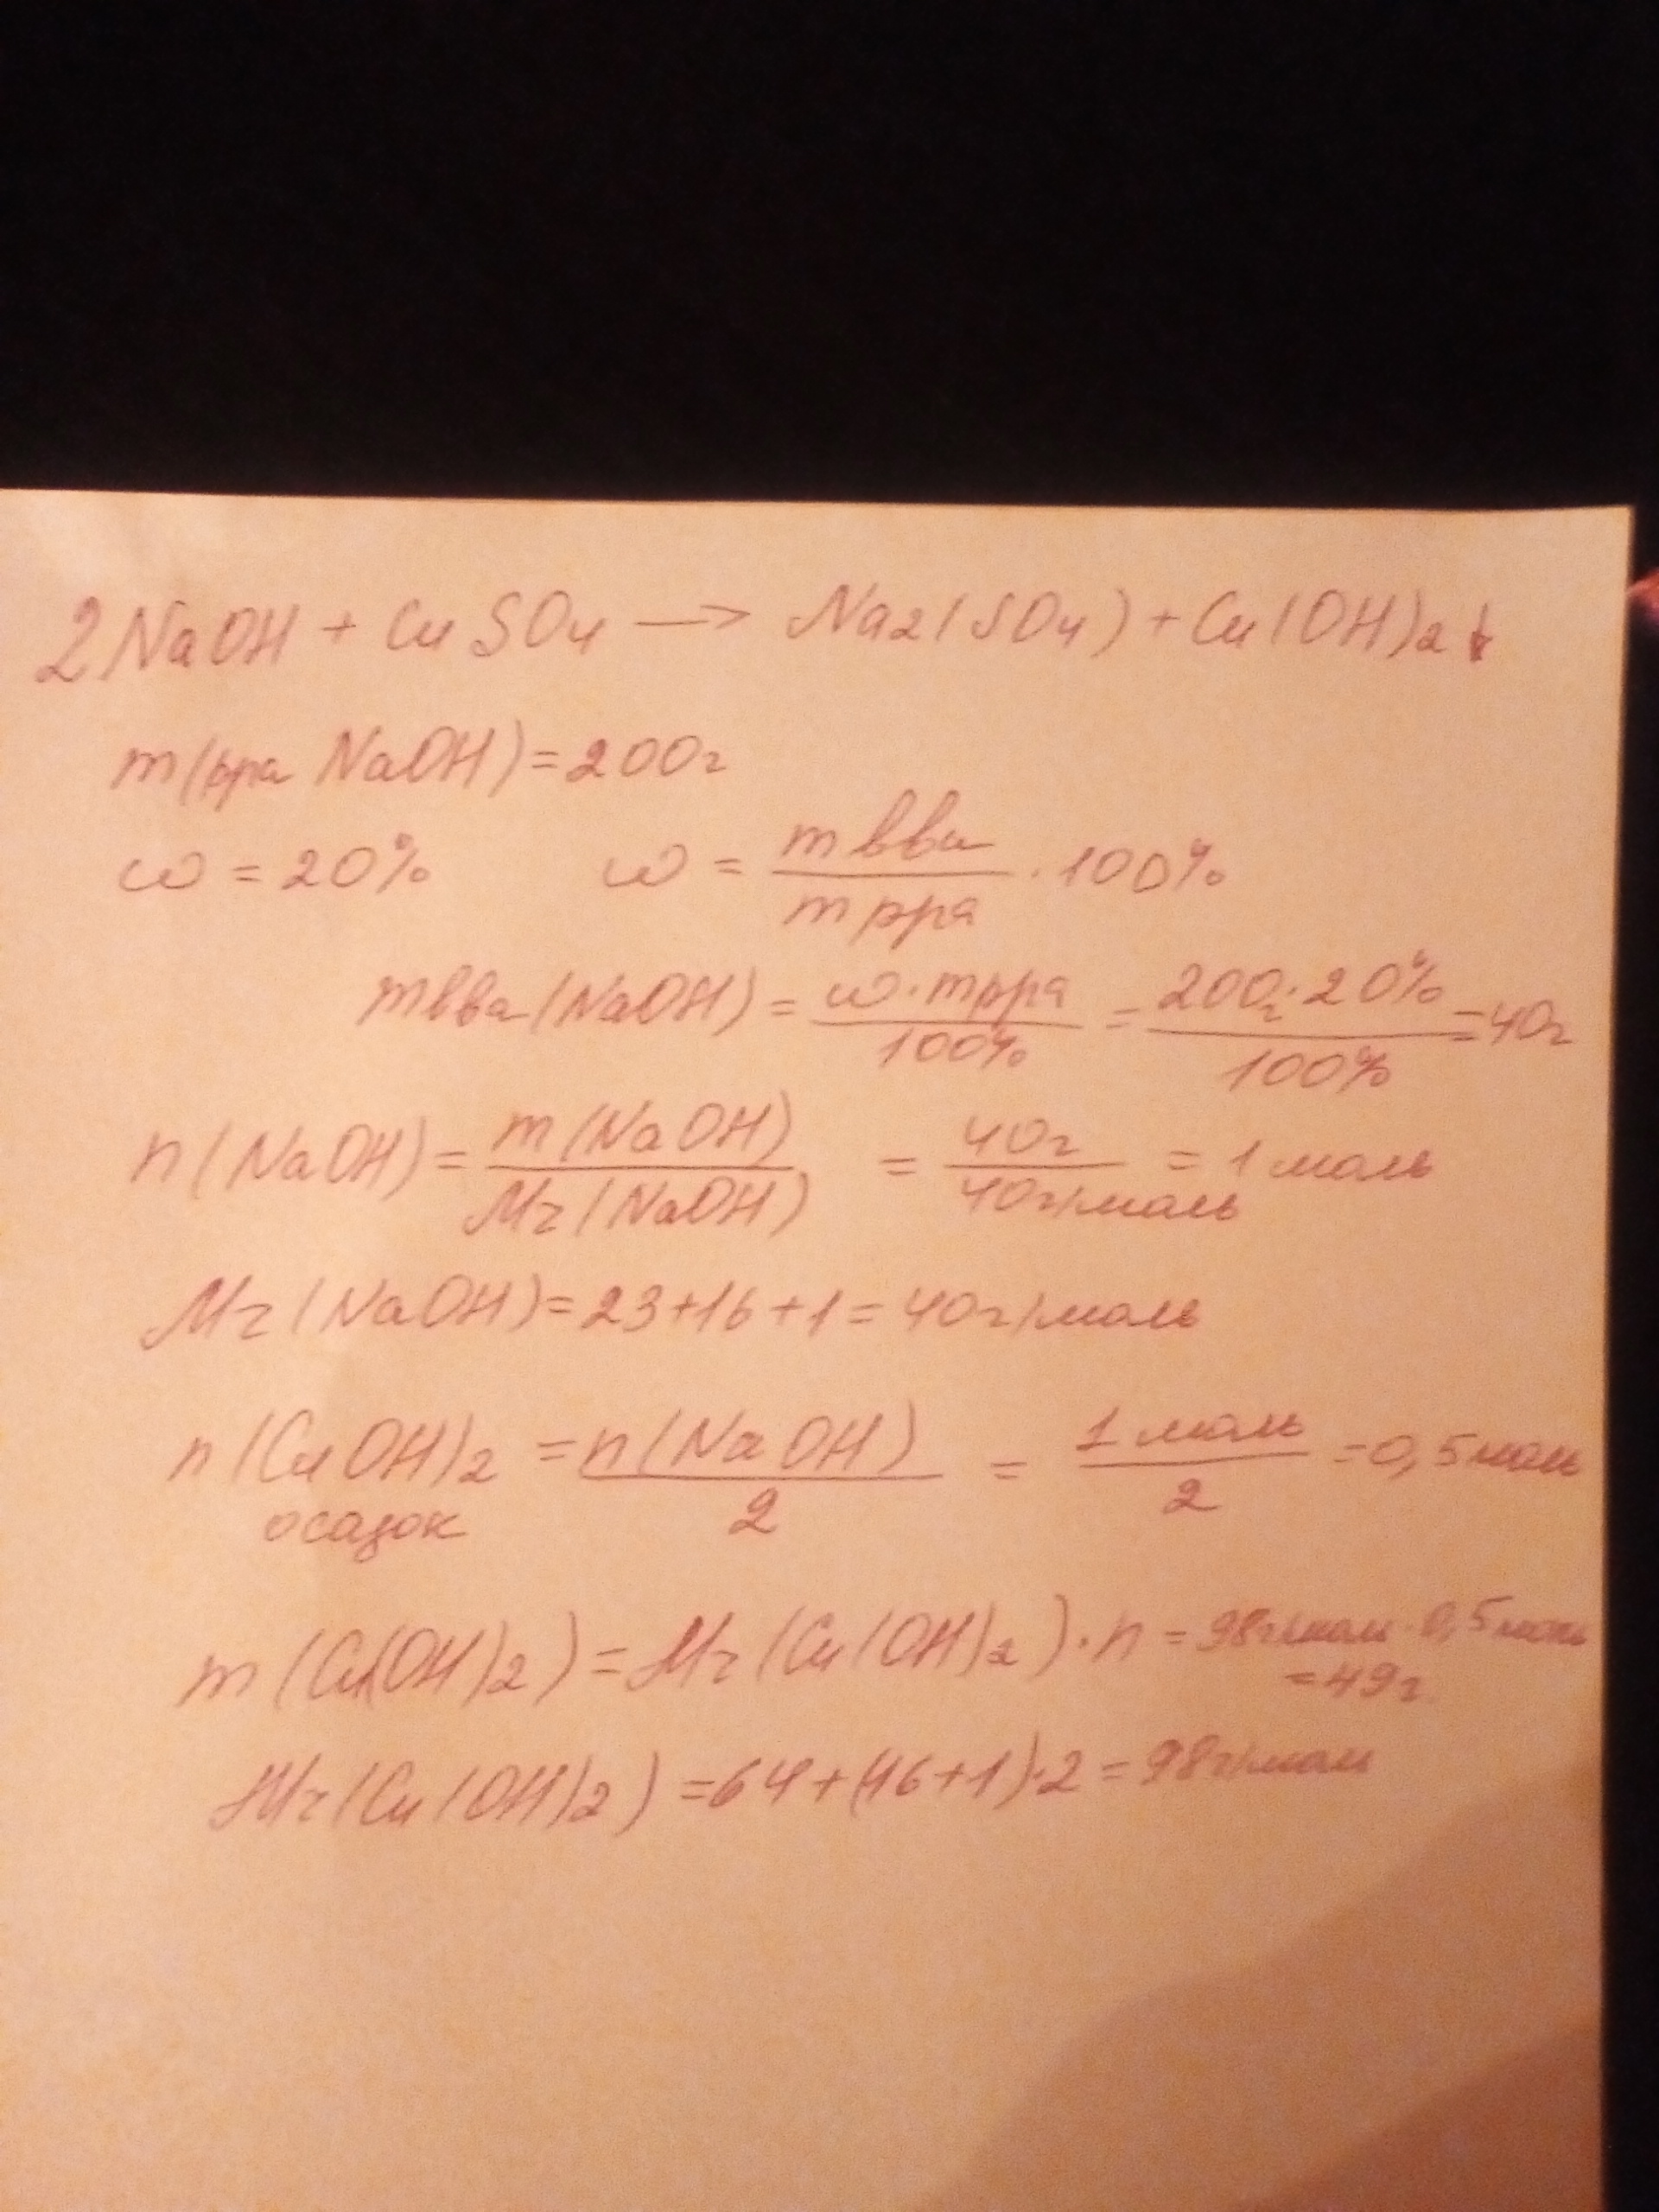 2NaOH + CuSO4 → Na2(SO4) + Cu(OH)2↓
m(рра NaOH) = 200г
ω = 20% ω = m вва / m рра · 100%
m вва (NaOH) = ω · m рра / 100% = 200г · 20% / 100% = 40г
n(NaOH) = m(NaOH) / Mr(NaOH) = 40г / 40г/моль = 1 моль
Mr(NaOH) = 23+16+1 = 40г/моль
n(Cu OH)2 = n(NaOH) / 2 = 1 моль / 2 = 0,5 моль
осадок
m(Cu(OH)2) = Mr(Cu(OH)2) · n = 98г/моль · 0,5 моль
= 49г
Mr(Cu(OH)2) = 64+(16+1)·2 = 98г/моль